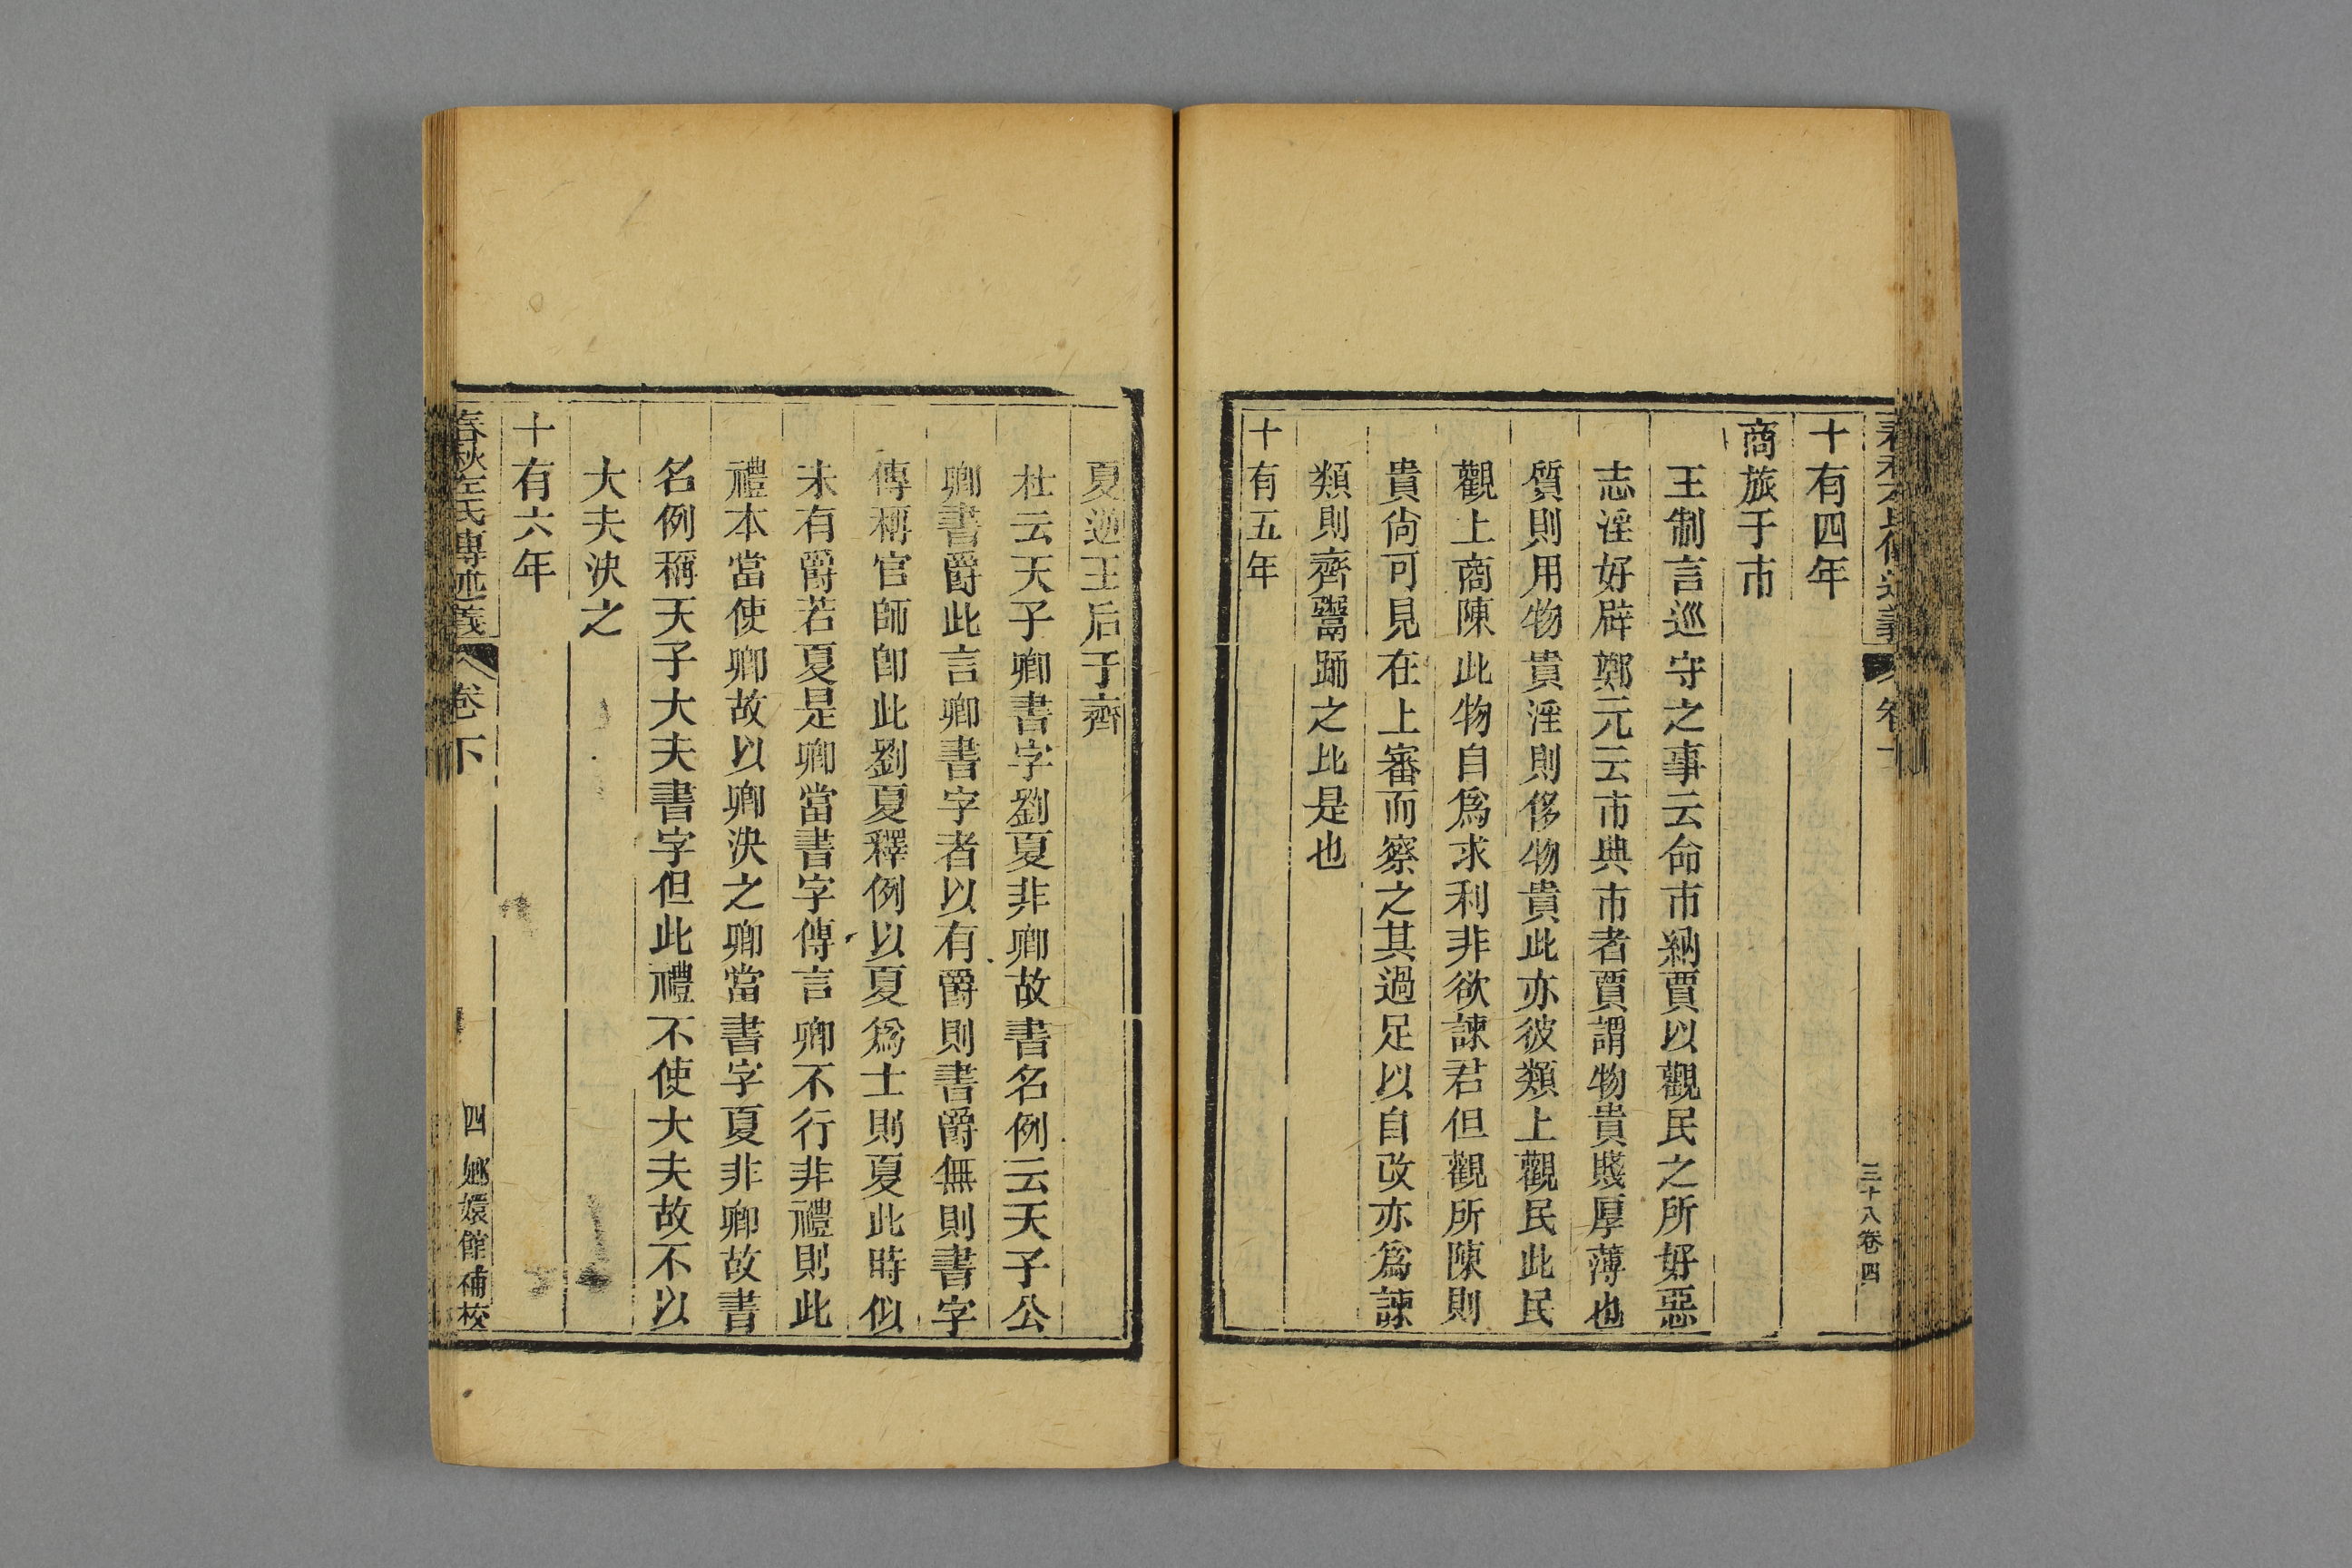 十有四年
商旅于市
王制言巡守之事云命市納賈以觀民之所好惡
志淫好辟鄭元云市典市者賈謂物貴賤厚薄也
質則用物貴淫則侈物貴此亦彼類上觀民此民
觀上商陳此物自爲求利非欲諫君但觀所陳則
貴尙可見在上審而察之其過足以自改亦爲諫
類則齊鬻踊之比是也
十有五年
三十八卷四
夏逆王后于齊
杜云天子卿書字劉夏非卿故書名例云天子公
卿書爵此言卿書字者以有爵則書爵無則書字
傳稱官師卽此劉夏釋例以夏爲士則夏此時似
未有爵若夏是卿當書字傳言卿不行非禮則此
禮本當使卿故以卿決之卿當書字夏非卿故書
名例稱天子大夫書字但此禮不使大夫故不以
大夫決之
十有六年
春秋左氏傳述義 卷下 四 嫏嬛館補校